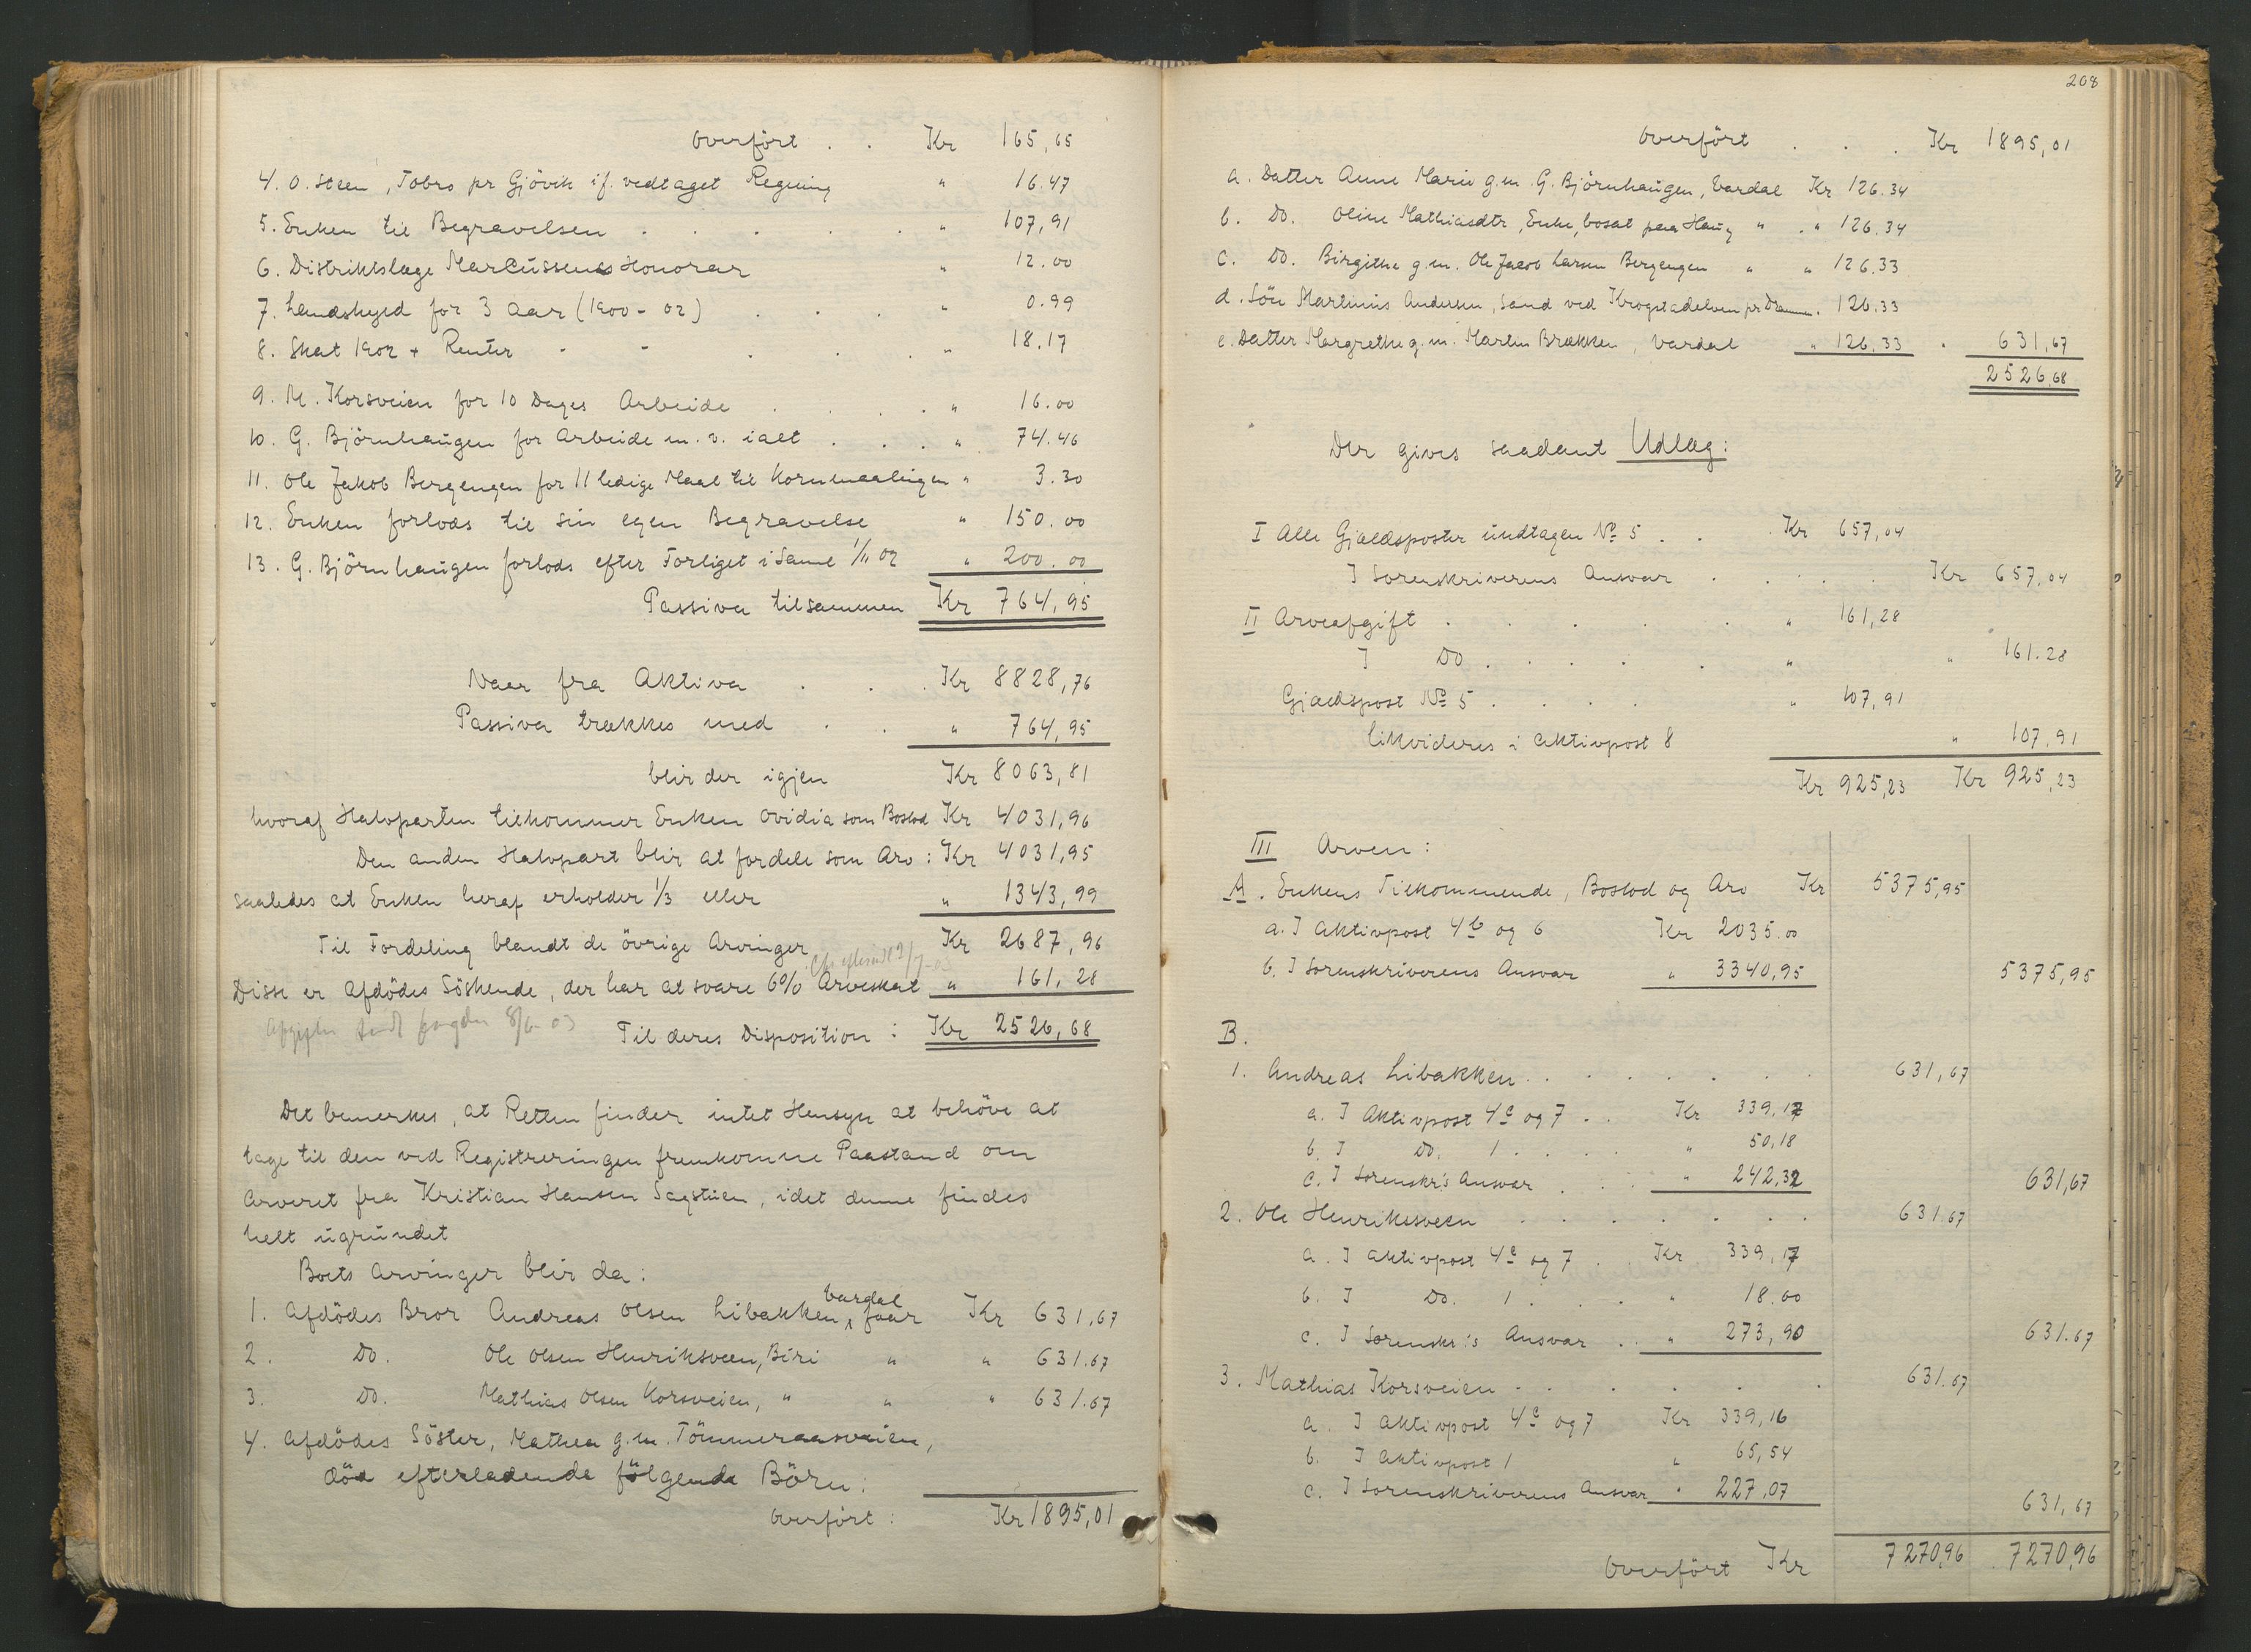 Overført . . Kr 165,65
4. O. Steen, Tobro pr Gjövik if. vedtaget Regning " 16.47
5. Enken til Begravelsen . . . . . " 107,91
6. Distriktslæge Marcussens Honorar " 12.00
7. Landskyld for 3 Aar (1900-02) . . . " 0.99
8. Skat 1902 + Renter - - . . . " 18.17
9. M. Korsveien for 10 Dages Arbeide . . . " 16.00
10. G. Björnhaugen for Arbeide m.v. ialt . . . " 74.46
11. Ole Jakob Bergengen for 11 ledige Maal til Kornmaalingen " 3.30
12. Enken forlods til sin egen Begravelse " 150.00
13. G. Björnhaugen forlods efter Forliget i Saml 1/11 02 " 200.00
Passiva tilsammen Kr 764,95
Naar fra Aktiva . . . Kr 8828,76
Passiva trækkes med . . " 764,95
blir der igjen Kr 8063,81
hvoraf Halvparten tilkommer Enken Ovidia som Boslod Kr 4031,96
Den anden Halvpart blir at fordele som Arv : Kr 4031,95
saaledes at Enken heraf erholder 1/3 eller " 1343,99
Til Fordeling blandt de övrige Arvinger Kr 2687,96
Disse er Afdödes Söskende, der har at svare 6% Arveskat " 161,28
Afgiften sendt fogden 8/6-03
Til deres Disposition : Kr 2526,68
Det bemerkes, at Retten finder intet Hensyn at behöve at
tage til den ved Registreringen fremkomne Paastand om
Arveret fra Kristian Hansen Sagstuen, idet denne findes
helt ugrundet
Boets Arvinger blir da:
1. Afdödes Bror Andreas Olsen Libakken, Vardal faar Kr 631,67
2. Do. Ole Olsen Henriksveen, Biri " " 631.67
3. Do. Mathias Olsen Korsveien, " " " 631.67
4. Afdödes Söster, Mathea g.m. Tömmeraasveien,
död efterladende fölgende Börn:
Overført : Kr 1895,01
208
Overført . . . Kr 1895,01
a. Datter Anne Marie g.m. G. Björnhaugen, Vardal Kr 126.34
b. Do. Oline Mathiasdtr, Enke, bosat paa Haug " . " 126.34
c. Do. Birgithe g.m. Ole Jacob Larsen Bergengen " " 126.33
d. Sön Martinius Andersen, Sand ved Krogstadelven pr Drammen. 126.33
e. Datter Margrethe g.m. Martin Brækken, Vardal " 126.33 " 631,67
2526,68
Der gives saadant Udlæg:
I Alle Gjældsposter undtagen No 5 . . Kr 657,04
I Sorenskriverens Ansvar . . . . Kr 657,04
II Arveafgift . . . . . " 161,28
I Do . . . . . " " 161.28
Gjældspost No 5 . . . . " 107,91
likvideres i Aktivpost 8 " 107.91
Kr 925,23 Kr 925,23
III Arven:
A. Enkens Tilkommende, Boslod og Arv Kr 5375,95
a. I Aktivpost 4b og 6 Kr 2035.00
b. I Sorenskriverens Ansvar " 3340,95 5375,95
B.
1. Andreas Libakken . . . . . . . 631,67
a. I Aktivpost 4c og 7 . . Kr 339,17
b. I Do. 1 . . . . " 50,18
c. I Sorenskr's Ansvar . . . " 242,32 631,67
2. Ole Henriksveen . . . . . . . 631.67
a. I Aktivpost 4c og 7 . . Kr 339,17
b. I Do. 1 . . . . " 18.60
c. I Sorenskr:s Ansvar . . " 273,90 631.67
3. Mathias Korsveien . . . . . . 631.67
a. I Aktivpost 4c og 7 Kr 339,16
b. I Aktivpost 1 " 65,54
c. I Sorenskriverens Ansvar " 227,07 631,67
Overført Kr 7270,96 7270,96